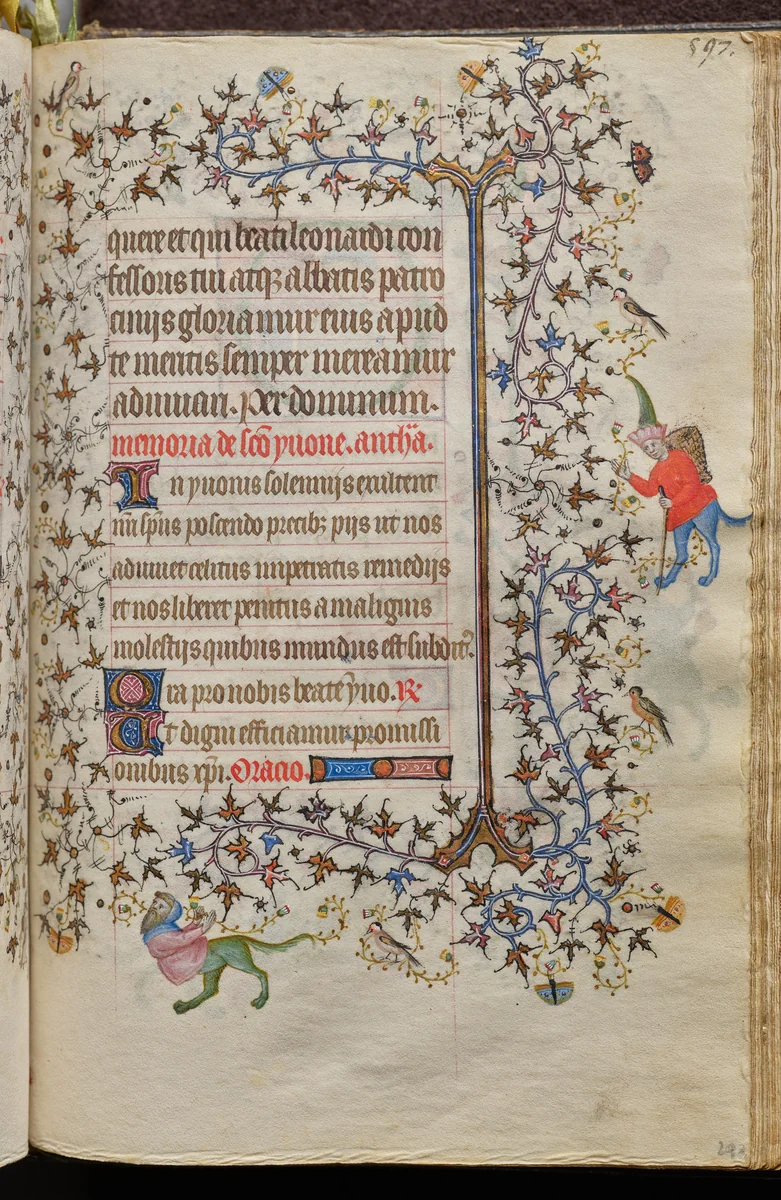 597.
quere et qui beati leonardi con
fessoris tui atqz abbatis patro
cinijs gloriamur eius apud
te meritis semper mereamur
adiuuari. per dominum.
memoria de sco yuone. antha.
In yuonis solemnijs exultent
spus poscendo precibz pijs ut nos
adiuuet celitus impetratis remedijs
et nos liberet penitus a malignis
molestijs quibus mundus est subdit.
Ora pro nobis beate yuo. R
Ut digni efficiamur promissi
onibus xpi. Oracio.